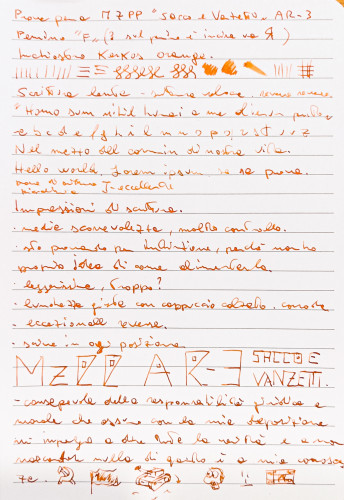 Prova penna MZPP "Sacco e Vanzetti" AR-3
Pennino "F" (sul pennino si incise va R)
Inchiostro Kaskos orange.
Scrittura lenta - scrittura veloce. reverse reverse.
"Homo sum nihil humani a me alienum puto"
a b c d e f g h i l m n o p q r s t u v z
Nel mezzo del cammin di nostra vita.
Hello world. Lorem ipsum se sa prova.
Impressioni di scrittura.
- media scorrevolezza, molto controllo.
- sto provando per intinzione, perché non ho
proprio idea di come alimentarla
- leggerina, troppo?
- lunghezza giusta con cappuccio calzato. comoda
- eccezionale reverse.
- scrive in ogni posizione
MZPP AR-3 SACCO E
VANZETTI.
- consapevole della responsabilità giuridica e
morale che assumo con la mia deposizione
mi impegno a dire tutta la verità e a non
nascondere nulla di quanto è a mia conoscen
za.